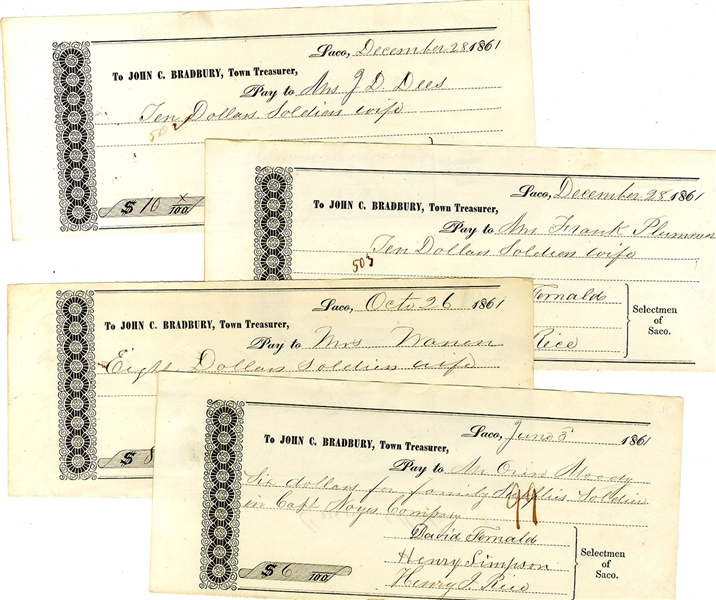 Saco, December 28 1861
To JOHN C. BRADBURY, Town Treasurer,
Pay to Mrs J. D. Dees
Ten Dollars Soldiers wife
502
$ 10 x/100
Saco, December 28 1861
To JOHN C. BRADBURY, Town Treasurer,
Pay to Mrs Frank Plummer
Ten Dollars Soldiers wife
503
Fernald
Rice
Selectmen
of
Saco.
Saco, Octo 26 1861
To JOHN C. BRADBURY, Town Treasurer,
Pay to Mrs
Eight Dollars Soldiers wife
$ 8
Saco, June 5 1861
To JOHN C. BRADBURY, Town Treasurer,
Pay to Mr Orin Moody
Six dollars for family Supplies Soldier
in Capt Noyes Company
99
David Fernald
Henry Simpson
Henry J. Rice
Selectmen
of
Saco.
$ 6 /100